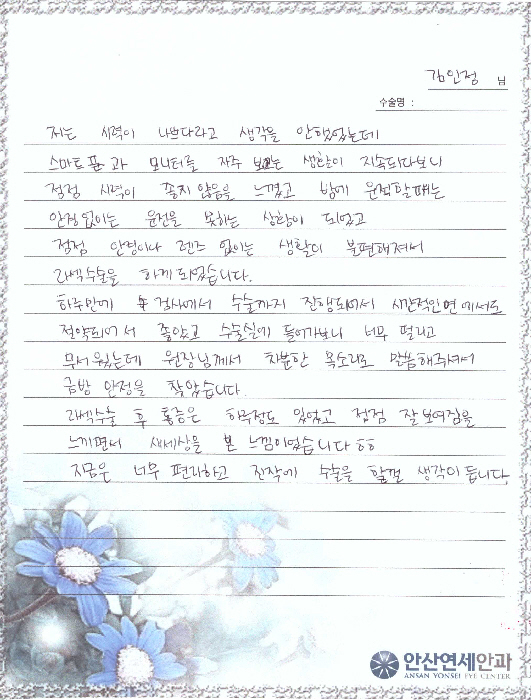 김인정 님
수술명 :
저는 시력이 나쁘다라고 생각을 안했었는데
스마트폰과 모니터를 자주 보는 생활이 지속되다보니
점점 시력이 좋지 않음을 느꼈고 밤에 운전할때는
안경없이는 운전을 못하는 상황이 되었고
점점 안경이나 렌즈 없이는 생활이 불편해져서
라섹수술을 하게 되었습니다.
하루만에 검사에서 수술까지 진행되어서 시간적인면에서도
절약되어서 좋았고 수술실에 들어가보니 너무 떨리고
무서웠는데 원장님께서 차분한 목소리로 말씀해주셔서
금방 안정을 찾았습니다.
라섹수술 후 통증은 하루정도 있었고 점점 잘보여짐을
느끼면서 새세상을 본 느낌이었습니다 ㅎㅎ
지금은 너무 편리하고 진작에 수술을 할껄 생각이 듭니다.
안산연세안과
ANSAN YONSEI EYE CENTER